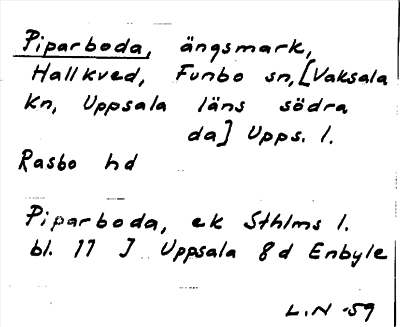 Piparboda, ängsmark,
Hallkved, Funbo sn, [Vaksala
kn, Uppsala läns södra
da] Upps. l.
Rasbo hd
Piparboda, ek Sthlms l.
bl. 11 J Uppsala 8d Enbyle
L.N -59